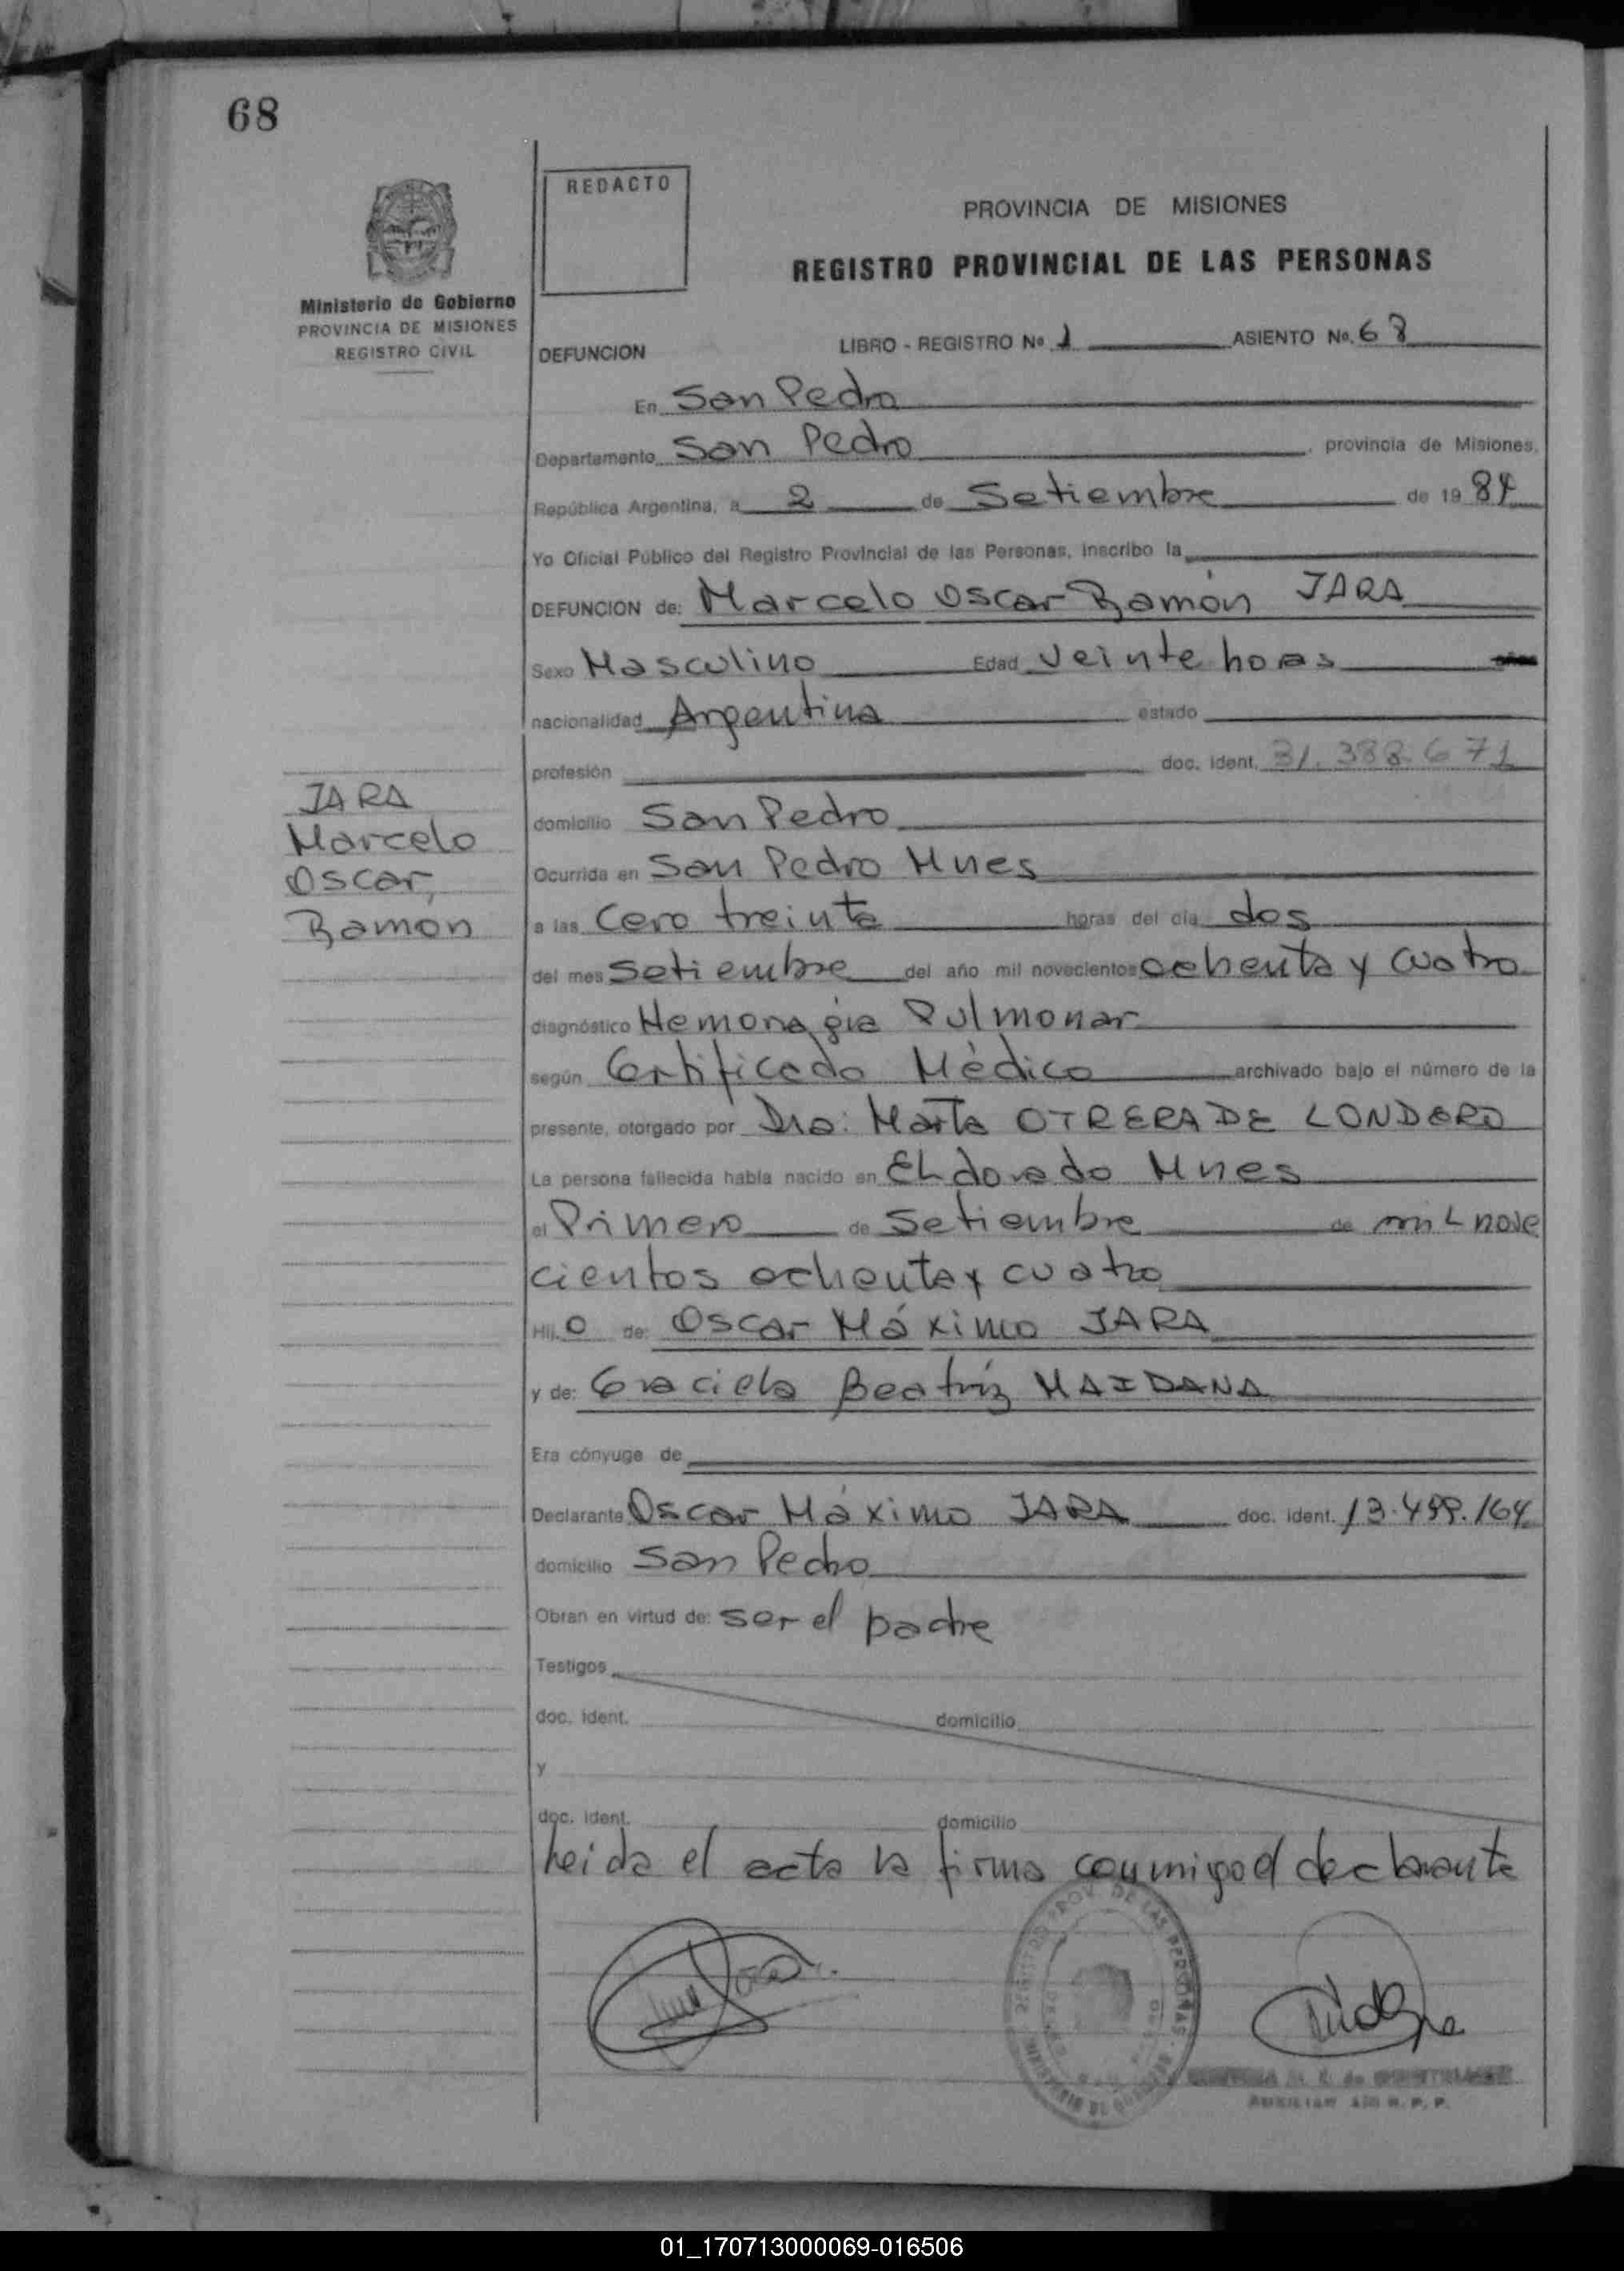 68
REDACTO
PROVINCIA DE MISIONES
REGISTRO PROVINCIAL DE LAS PERSONAS
Ministerio de Gobierno
PROVINCIA DE MISIONES
REGISTRO CIVIL
DEFUNCION LIBRO - REGISTRO Nº 1 ASIENTO Nº 68
En San Pedro
Departamento San Pedro, provincia de Misiones,
República Argentina, a 2 de Setiembre de 1984
Yo Oficial Público del Registro Provincial de las Personas, inscribo la
DEFUNCION de: Marcelo Oscar Ramón JARA
Sexo Masculino Edad Veinte horas años
nacionalidad Argentina estado
profesión doc. ident. 31.388.671
JARA
Marcelo
Oscar,
Ramon
domicilio San Pedro
Ocurrida en San Pedro Mnes
a las Cero treinta horas del día dos
del mes Setiembre del año mil novecientos ochenta y cuatro
diagnóstico Hemorragia Pulmonar
según Certificado Médico archivado bajo el número de la
presente, otorgado por Dra: Marta OTRERA DE LONDERO
La persona fallecida había nacido en ELdorado Mnes
el Primero de Setiembre de miL nove
cientos ochenta y cuatro
Hij o de: Oscar Máximo JARA
y de: Graciela Beatríz MAIDANA
Era cónyuge de
Declarante Oscar Máximo JARA doc. ident. 13.499.164
domicilio San Pedro
Obran en virtud de: ser el padre
Testigos
doc. ident. domicilio
y
doc. ident. domicilio
Leida el acta la firma conmigo el declarante
AUXILIAR R. P. P.
01_170713000069-016506